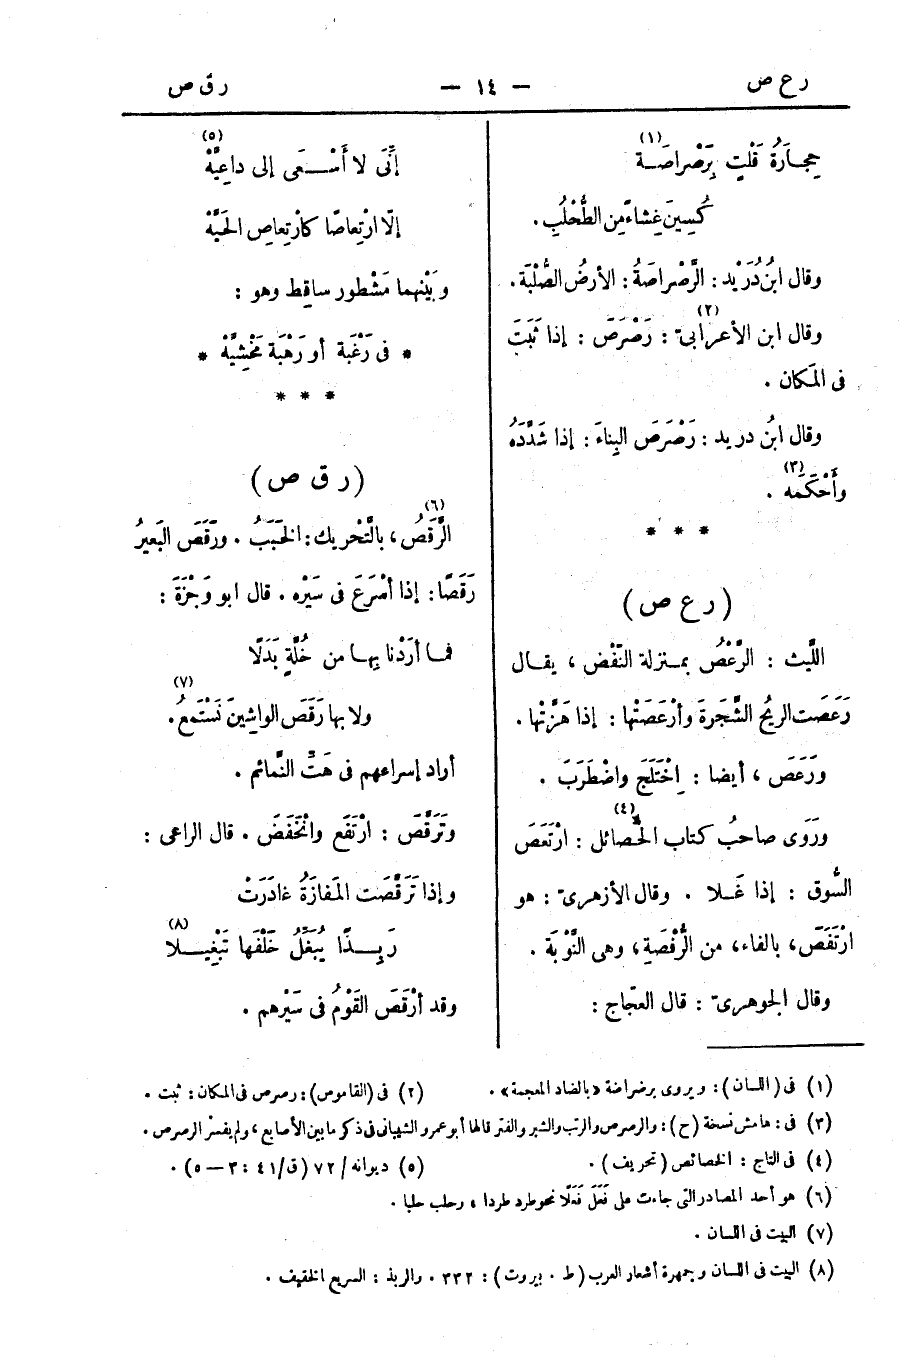 رع ص
— ١٤ —
رق ص
حِجارَةُ قَلْتٍ بِرَصْراصَـة (١)
كُسِينَ غِشاءً مِن الطُّحْلُبِ .
وقال ابنُ دُرَيْد : الرَّصْراصَةُ : الأرضُ الصُّلْبَة .
وقال ابن الأعرابىّ (٢) : رَصْرَصَ : إذا ثَبَتَ
فى المَكان .
وقال ابنُ دريد : رَصْرَصَ البِناءَ : إذا شَدَّدَهُ
وأَحْكَمَه (٣) .
* * *
( رع ص )
اللَّيث : الرَّعْصُ بمنزلة النَّفْض ، يقال
رَعَصَت الريحُ الشَّجَرةَ وأرْعَصَتْها : إذا هَزَّتْها .
ورَعَصَ ، أيضا : اِخْتَلَجَ واضْطَرَبَ .
ورَوَى صاحبُ كتاب الحَصائل (٤) : ارْتَعَصَ
السُّوق : إذا غَـلا . وقال الأزهرىّ : هو
ارْتَفَصَ ، بالفاء ، من الرُّفْصَةِ ، وهى النَّوْبَة .
وقال الجوهرىّ : قال العجّاج :
إنِّىَ لا أَسْـعَى إلى داعِيَّهْ (٥)
إلّا ارْتِعاصًا كارْتِعاصِ الحَيَّهْ
وبَيْنهما مَشْطور ساقِط وهو :
* فى رَغْبَة أو رَهْبَة مَخْشِيَّهْ *
* * *
( رق ص )
الرَّقَصُ (٦) ، بالتَّحْريك : الخَبَبُ . ورَقَصَ البَعيرُ
رَقَصًا : إذا أسْرَعَ فى سَيْرِه . قال ابو وَجْزَةَ :
فمـا أرَدْنا بِهـا من خُلَّةٍ بَدَلًا
ولا بها رَقَصَ الواشِينَ نَسْتَمِعُ (٧) .
أراد إسراعهم فى هَتِّ النَّمائم .
وتَرَقَّصَ : ارْتَفَع وانْخَفَضَ . قال الراعى :
وإذا تَرَقَّصَت المَفازَةُ غادَرَتْ
رَبِـذًا يُبَغِّلُ خَلْفَها تَبْغِيـلا (٨)
وقد أرْقَصَ القَوْمُ فى سَيْرهم .
(١) فى (اللسان) : ويروى برضراضة «بالضاد المعجمة» . (٢) فى (القاموس) : رصرص فى المكان : ثبت .
(٣) فى : هامش نسخة (ح) : والرصرص والرتب والشبر والفتر قالها أبو عمرو الشيبانى فى ذكر ما بين الأصابع ، ولم يفسر الرصرص .
(٤) فى التاج : الخصائص (تحريف) . (٥) ديوانه / ٧٢ (ق/٤١ : ٣ — ٥) .
(٦) هو أحد المصادر التى جاءت على فَعَل فَعَلًا نحو طرد طردا ، وحلب حلبا .
(٧) البيت فى اللسان .
(٨) البيت فى اللسان وجمهرة أشعار العرب (ط . بيروت) : ٣٣٢ . والربذ : السريع الخفيف .